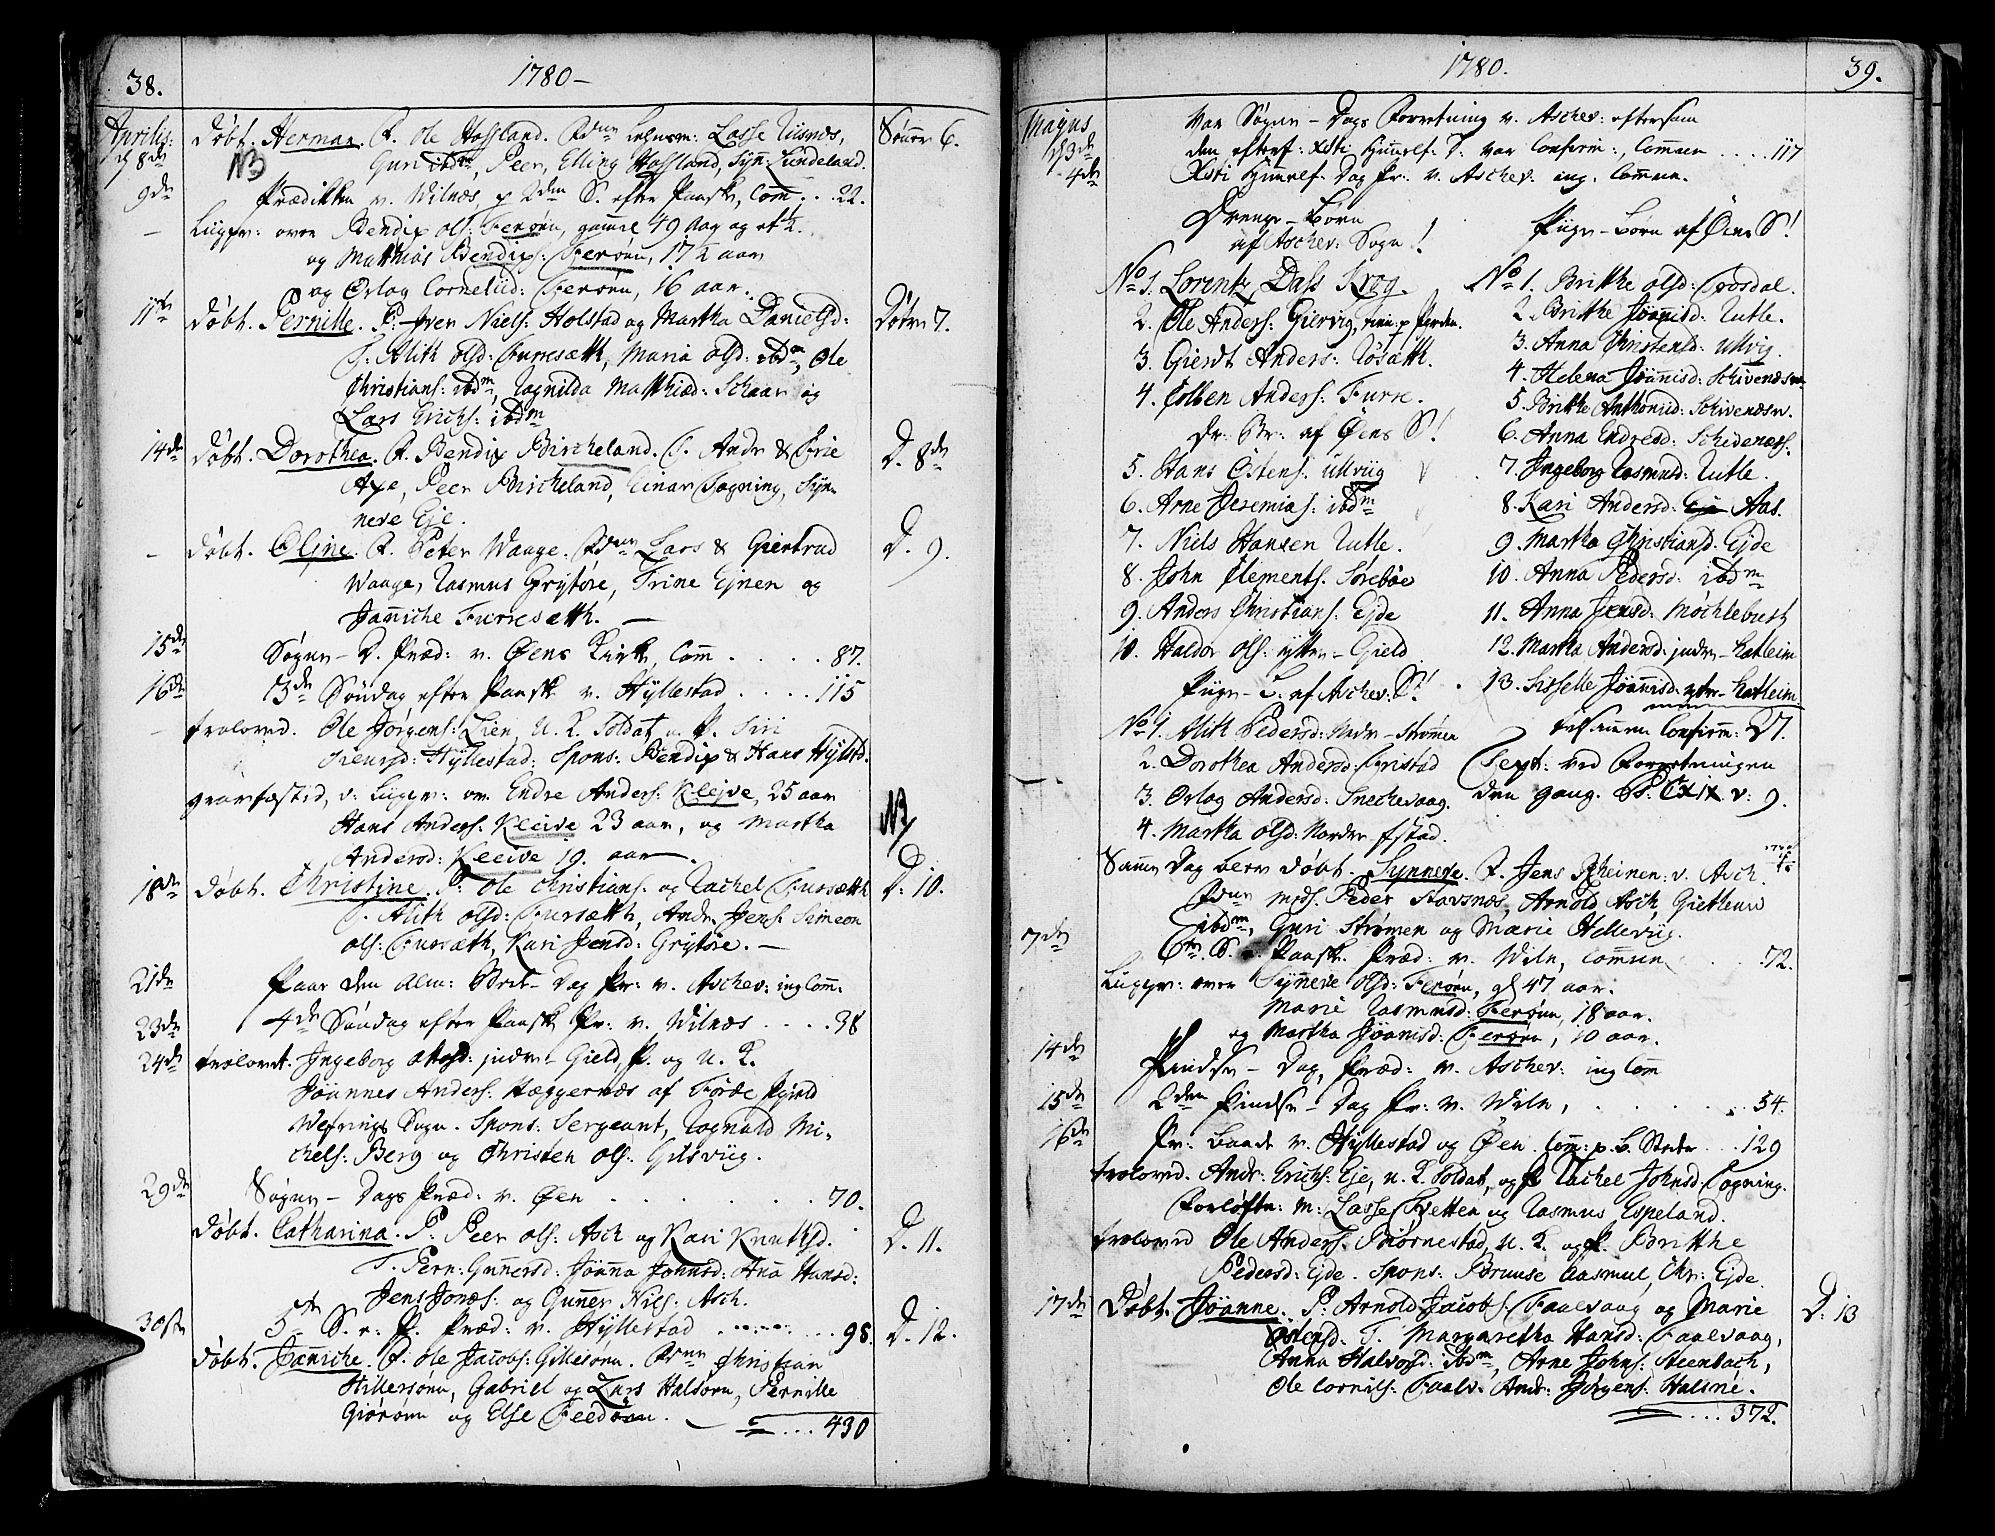 38. 1780-
Aprilis:
d 8de Døbt. Herman. P. Ole Hofsland. Lasse Risnæs, Sönner 6.
NB Guri ibdm, Peer, Elling Hofsland, Syn: Lundeland.
9de Prædiken v. Wilnæs, p 2den S. efter Paask, Com̄ . . 22.
- Liigpr: over Bendix Ols: Ferøen, gamel 49 Aar og et ½.
og Matthias Bendixs: Ferøen, 17½ aar
og Orlog Corneliid: Ferøen, 16 aar.
11te Døbt. Pernille. P: Iver Niels: Holstad og Martha Danielsd: Døtre 7.
T. Alith Olsd: Furesætth, Maria Olsd: ibdm, Ole
Christians: ibdm, Ragnilda Matthiæd: Schaar og
Lars Erichs: ibdm
14de Døbt. Dorothea. P. Bendix Bircheland. T. Andr & Brie D. 8de
Aze, Peer Bircheland, Einar Fagning, Syn-
neve Eje.
- Døbt. Oline. P. Peter Waage. Lars & Giertrud D. 9.
Waage, Rasmus Grytøre, Trine Ejnen og
Jan̄iche Furresætth. -
15de Søgne- D. Præd: v. Øens Kirk, Com̄ . . . . 87.
16de 3de Søndag efter Paask v. Hyllestad . . . . 115
- troloved. Ole Jørgens: Lien, U. K. Soldat, P. Siri
Hyllestad: Spons: Bendix & Hans Hyllstd.
gravfæstid, v: Liigpr: ov. Endre Anders: Kleive, 25 aar
Hans Anders: Kleive 23 aar, og Martha NB
Andersd: Kleive 19. aar.
18de Døbt. Christine. P: Ole Christians: og Rachel Fursætth D: 10.
T. Alith Olsd: Fursætth, Andr Jens: Simeon
Ols: Fursæth, Kari Jensd: Grytøre. -
21de Paa den Alm: Bede- Dag Pr: v. Aschev: ing Com̄:
23de 4de Søndag efter Paask Pr: v. Wilnæs . . . . 38
24de trolovet. Ingeborg indre- Gield, P. og U. K.
Jøannes Anders: Hæggernæs af Førde Pgield
Wefrings Sogn. Spons: Sergeant, Rognald Mi-
chels: Berg og Christen Ols. Gilsviig.
29de Søgne- Dags Præd: v. Øen . . . . . . . 70.
Døbt. Catharina. P: Peer Ols: Asch og Kari Knuthsd. D. 11.
T. Pern: Gunnersd: Jøanna Johnsd: Ana Hansd:
Jens Jonæs: og Guner Nils: Asch.
30te 5te S. e: P. Præd: v. Hyllestad . . . . . 98. D. 12.
Døbt. Jan̄iche. P: Ole Jacobs: Gillesøen. Christian
Hillersøen, Gabriel og Lars Halsøen, Pernille
Giørøen og Else Feedøen. . . . 430
1780. 39.
Majus Var Søgne- Dags Forretning v. Aschev: eftersom
d 3de den efterf: Xsti Him̄elf: D: var Confirm:, Com̄un . . . . 117
4de Xsti Him̄elf. Dag Pr: v. Aschev. ing. Com̄un.
Drenge- Børn
af Aschev: Sogn!
No 1. Lorentz Dass Krog.
2. Ole Anders: Giervig,
3. Gierdt Anders: Røsætth.
4. Colben Anders: Furre.
Dr: Br: af Øens S!
5. Hans Østens: Ullviig
6. Arne Jeremias: ibdm
7. Niels Hansen Rutle.
8. John Clements: Sørebøe
9. Anders Christians: Ejde
10. Haldor Ols: yttre- Gield
Piige- B. af Aschev: S!
No 1. Alith Pedersd: Nedr- Strømen
2. Dorothea Andersd: Tristad
3. Orlog Andersd: Snechevaag.
4. Martha Olsd: Nordre Ystad.
Piige- Børn af Øens S!
No 1. Britthe Olsd: Fosdal.
2. Britthe Jøanisd: Rutle.
3. Anna Christensd: Ullvig.
4. Helena Jøanisd: Schivenæsv.
5. Britthe Anthoniid: Schivenæsv.
6. Anna Endresd: Schedenæss:
7. Ingeborg Rasmusd: Rutle.
8. Kari Andersd: Eje Aas.
9. Martha Christiansd: Ejde
10. Anna Pedersd: ibdm
11. Anna Jensd: Møchlebust
12. Martha Andersd: indre- Hatleim
13. Sisselle Jøanisd: ytre- Hatleim
tilsamen Confirm: 27.
Text: ved Forretningen
den gang. Ps. CXIX v: 9.
Sam̄e Dag blev døbt. Synneve. P. Jens Rheinen: v. Asch.
med: Peder Stavsnæs, Arnold Asch, Giethrud
ibdm, Guri Strømen og Marie Helleviig.
7de 6te S. e. Paask: Præd: v. Wiln, Com̄un . . . 72.
Liigpr: over Synneve Olsd: Ferøen, gl 47 aar.
Marie Rasmusd: Ferøen, 18 aar.
og Martha Jøanisd: Ferøen, 10 aar.
14de Pindse- Dag, Præd: v. Aschev: ing Com̄
15de 2den Pindse- Dag Pr: v. Wiln, . . . . . 54.
16de Pr: baade v. Hyllestad og Øen. Com̄: p. b. Steder . . . 129
trolovd. Andr: Erichs: Eje, U. K. Soldat, og P. Rachel Johnsd: Fogning.
Forløftn: m: Lasse Tvetten og Rasmus Espeland.
trolovd Ole Anders: Biørnestad, U. K. og P. Britthe
Pedersd: Ejde. Spons: Ejde.
17de Døbt. Jøanne. P. Arnold Jacobs: Faalevaag og Marie D: 13
Østensd: T. Margaretha Hansd: Faalevaag,
Anna Halvorsd: ibdm, Arne Johns: Steenbach,
Ole Cornils: Faalv: Andr: Jørgens: Halsnø.
. . . 372.